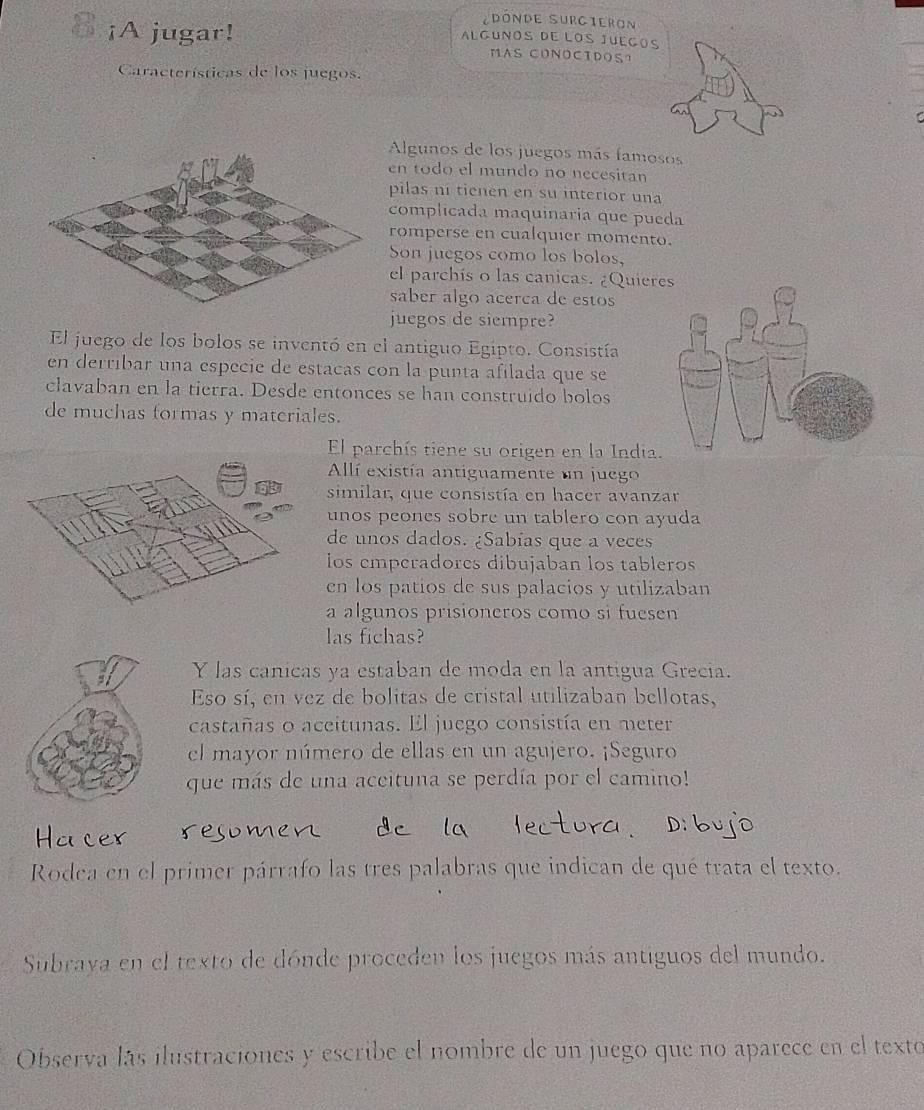 8 ¡A jugar!
¿DÓNDE SURGIERON
ALGUNOS DE LOS JUEGOS
MÁS CONOCIDOS?
Características de los juegos.
Algunos de los juegos más famosos
en todo el mundo no necesitan
pilas ni tienen en su interior una
complicada maquinaria que pueda
romperse en cualquier momento.
Son juegos como los bolos,
el parchís o las canicas. ¿Quieres
saber algo acerca de estos
juegos de siempre?
El juego de los bolos se inventó en el antiguo Egipto. Consistía
en derribar una especie de estacas con la punta afilada que se
clavaban en la tierra. Desde entonces se han construido bolos
de muchas formas y materiales.
El parchís tiene su origen en la India.
Allí existía antiguamente un juego
similar, que consistía en hacer avanzar
unos peones sobre un tablero con ayuda
de unos dados. ¿Sabías que a veces
los emperadores dibujaban los tableros
en los patios de sus palacios y utilizaban
a algunos prisioneros como si fuesen
las fichas?
Y las canicas ya estaban de moda en la antigua Grecia.
Eso sí, en vez de bolitas de cristal utilizaban bellotas,
castañas o aceitunas. El juego consistía en meter
el mayor número de ellas en un agujero. ¡Seguro
que más de una aceituna se perdía por el camino!
Hacer resumen de la lectura. Dibujo
Rodea en el primer párrafo las tres palabras que indican de qué trata el texto.
Subraya en el texto de dónde proceden los juegos más antiguos del mundo.
Observa las ilustraciones y escribe el nombre de un juego que no aparece en el texto